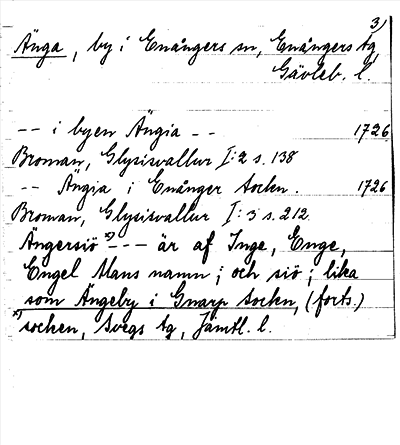 3)
Änga, by i Enångers sn, Enångers tg,
Gävleb. l.
-- i byen Ängia -- 1726
Broman, Glysisvallur I:2 s. 138
-- Ängia i Enånger Sockn. 1726
Broman, Glysisvallur I:3 s. 212
Ängersiö x) --- är af Inge, Enge,
Engel Mans namn; och siö; lika
som Ängeby i Gnarp Sockn, (forts.)
x) socken, Svegs tg, Jämtl. l.